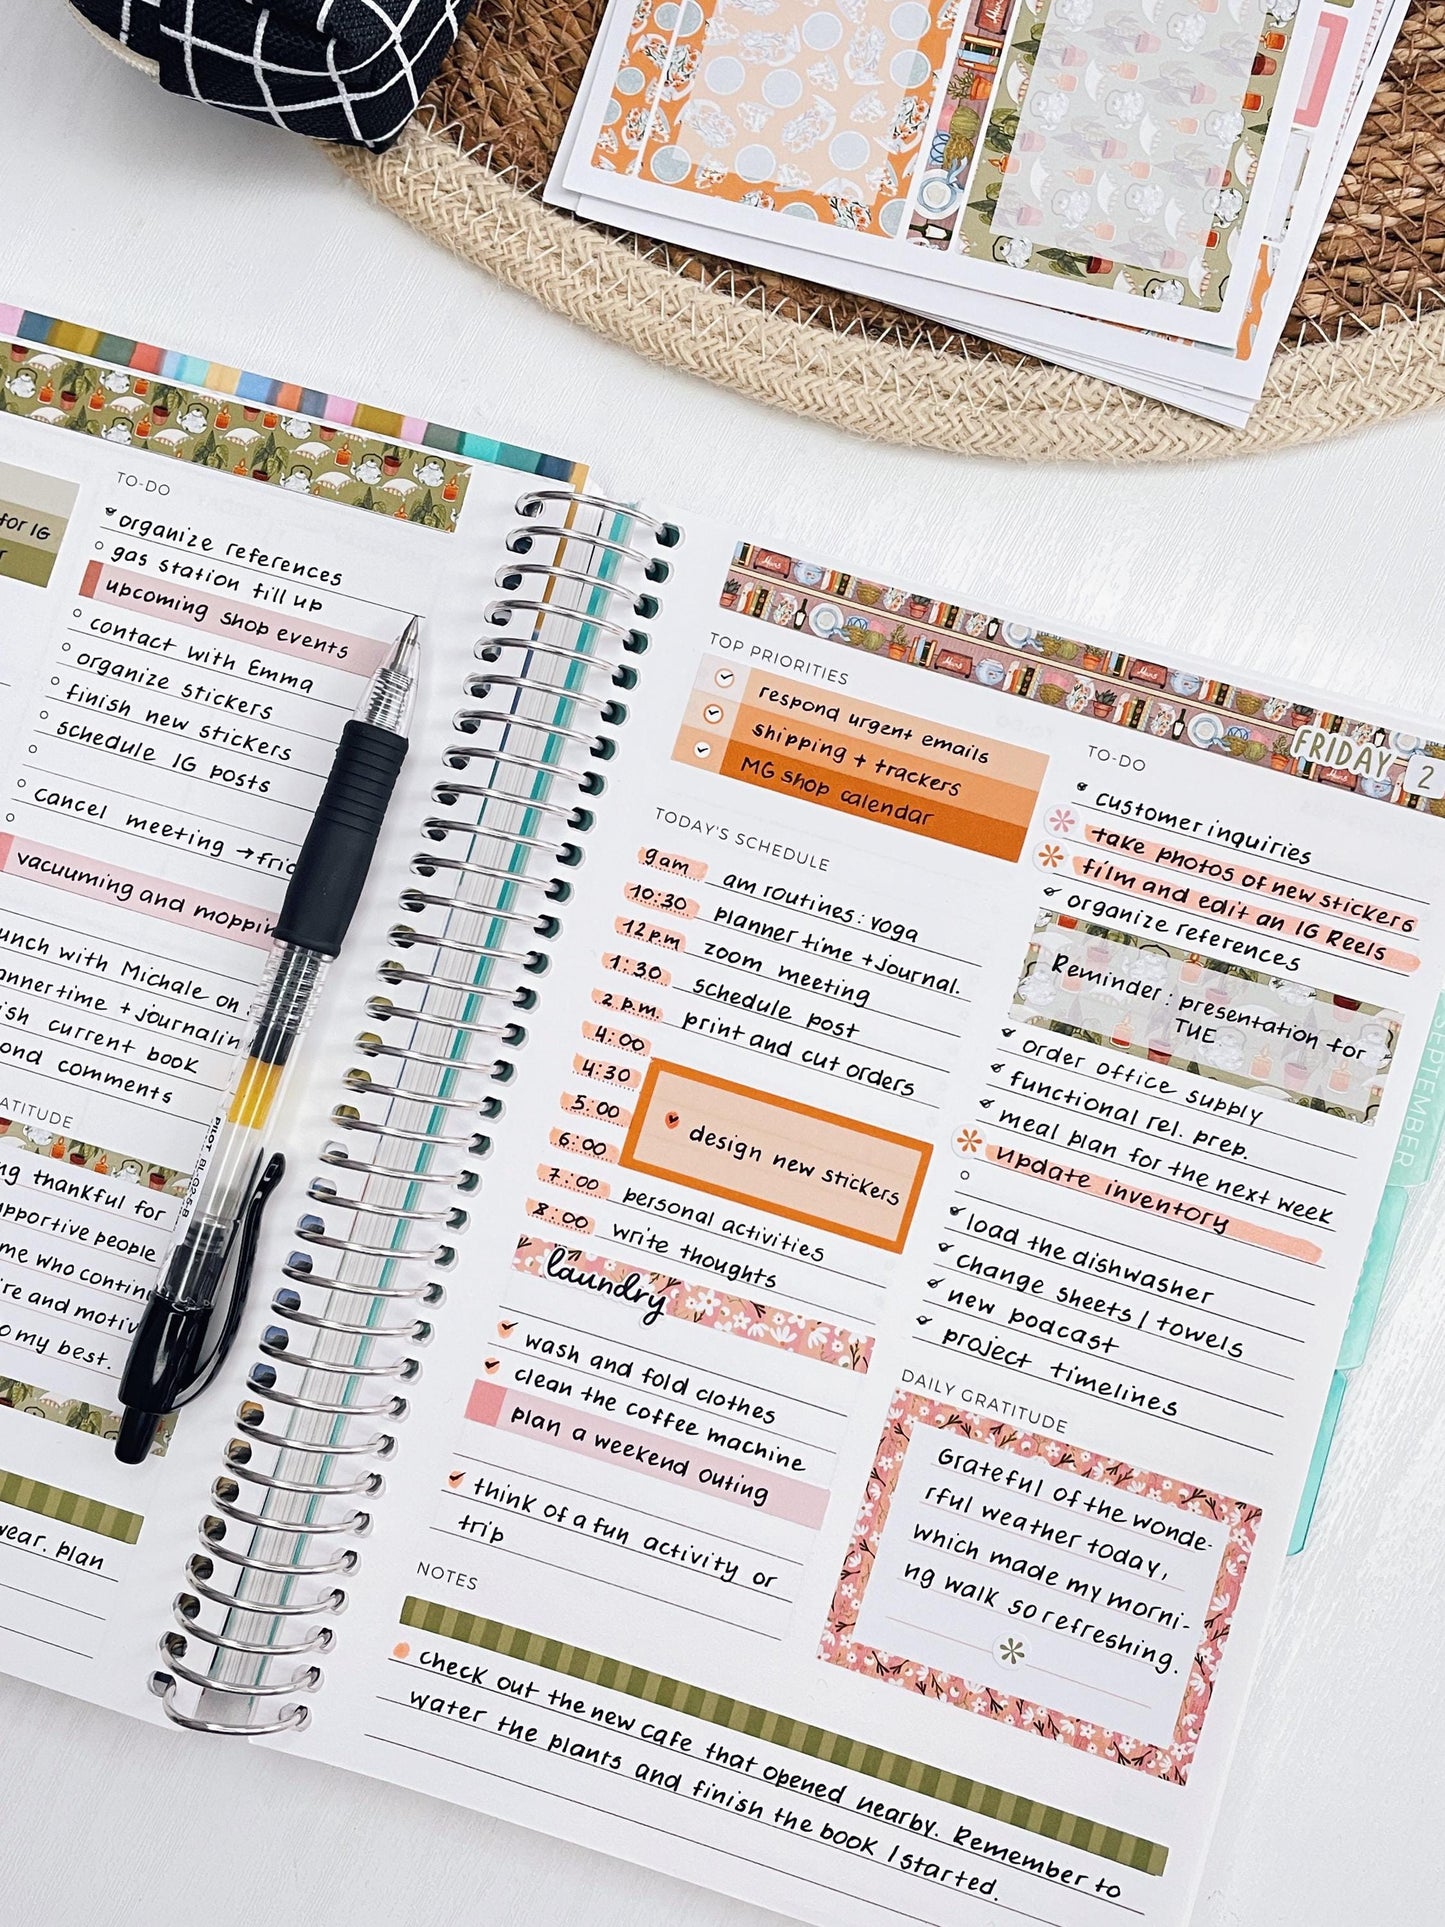 for IG
TO-DO
organize references
gas station fill up
upcoming shop events
contact with Emma
organize stickers
finish new stickers
schedule IG posts
cancel meeting →
vacuuming and
with Michale on
time + journalin
current book
comments
thankful for
people
me who
and
my best.
wear. plan
PILOT BL-G2-5-B
FRIDAY 2
TOP PRIORITIES
respond urgent emails
shipping + trackers
MG shop calendar
TODAY'S SCHEDULE
9am am routines: yoga
10:30 planner time + journal.
12 p.m zoom meeting
1:30 schedule post
2 p.m. print and cut orders
4:00
4:30
5:00 design new stickers
6:00
7:00 personal activities
8:00 write thoughts
laundry
wash and fold clothes
clean the coffee machine
plan a weekend outing
think of a fun activity or
trip
TO-DO
customer inquiries
take photos of new stickers
film and edit an IG Reels
organize references
Reminder: presentation for
TUE
order office supply
functional rel. prep.
meal plan for the next week
update inventory
load the dishwasher
change sheets / towels
new podcast
project timelines
DAILY GRATITUDE
Grateful of the wonde-
rful weather today,
which made my morni-
ng walk so refreshing.
NOTES
check out the new cafe that opened nearby. Remember to
water the plants and finish the book I started.
SEPTEMBER